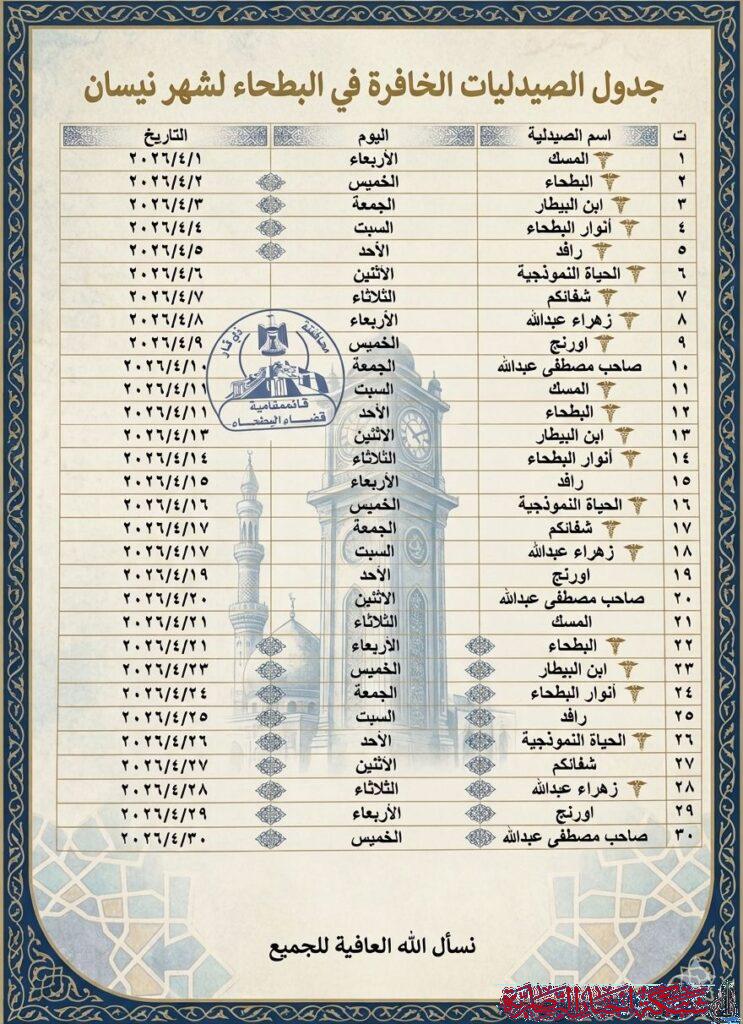 جدول الصيدليات الخافرة في البطحاء لشهر نيسان
ت اسم الصيدلية اليوم التاريخ
١ المسك الأربعاء ٢٠٢٦/٤/١
٢ البطحاء الخميس ٢٠٢٦/٤/٢
٣ ابن البيطار الجمعة ٢٠٢٦/٤/٣
٤ أنوار البطحاء السبت ٢٠٢٦/٤/٤
٥ رافد الأحد ٢٠٢٦/٤/٥
٦ الحياة النموذجية الأثنين ٢٠٢٦/٤/٦
٧ شفائكم الثلاثاء ٢٠٢٦/٤/٧
٨ زهراء عبدالله الأربعاء ٢٠٢٦/٤/٨
٩ اورنج الخميس ٢٠٢٦/٤/٩
١٠ صاحب مصطفى عبدالله الجمعة ٢٠٢٦/٤/١٠
١١ المسك السبت ٢٠٢٦/٤/١١
١٢ البطحاء الأحد ٢٠٢٦/٤/١١
١٣ ابن البيطار الاثنين ٢٠٢٦/٤/١٣
١٤ أنوار البطحاء الثلاثاء ٢٠٢٦/٤/١٤
١٥ رافد الأربعاء ٢٠٢٦/٤/١٥
١٦ الحياة النموذجية الخميس ٢٠٢٦/٤/١٦
١٧ شفائكم الجمعة ٢٠٢٦/٤/١٧
١٨ زهراء عبدالله السبت ٢٠٢٦/٤/١٧
١٩ اورنج الأحد ٢٠٢٦/٤/١٩
٢٠ صاحب مصطفى عبدالله الأثنين ٢٠٢٦/٤/٢٠
٢١ المسك الثلاثاء ٢٠٢٦/٤/٢١
٢٢ البطحاء الأربعاء ٢٠٢٦/٤/٢١
٢٣ ابن البيطار الخميس ٢٠٢٦/٤/٢٣
٢٤ أنوار البطحاء الجمعة ٢٠٢٦/٤/٢٤
٢٥ رافد السبت ٢٠٢٦/٤/٢٥
٢٦ الحياة النموذجية الأحد ٢٠٢٦/٤/٢٦
٢٧ شفائكم الأثنين ٢٠٢٦/٤/٢٧
٢٨ زهراء عبدالله الثلاثاء ٢٠٢٦/٤/٢٨
٢٩ اورنج الأربعاء ٢٠٢٦/٤/٢٩
٣٠ صاحب مصطفى عبدالله الخميس ٢٠٢٦/٤/٣٠
محافظة ذي قار
قائممقامية
قضاء البطحاء
نسأل الله العافية للجميع